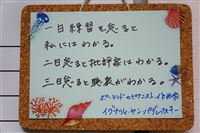 一日練習を怠ると
私にはわかる。
二日怠ると批評家はわかる。
三日怠ると聴衆がわかる。
ポーランドのピアニスト、作曲家
イグナツィ・ヤン・パデレフスキー